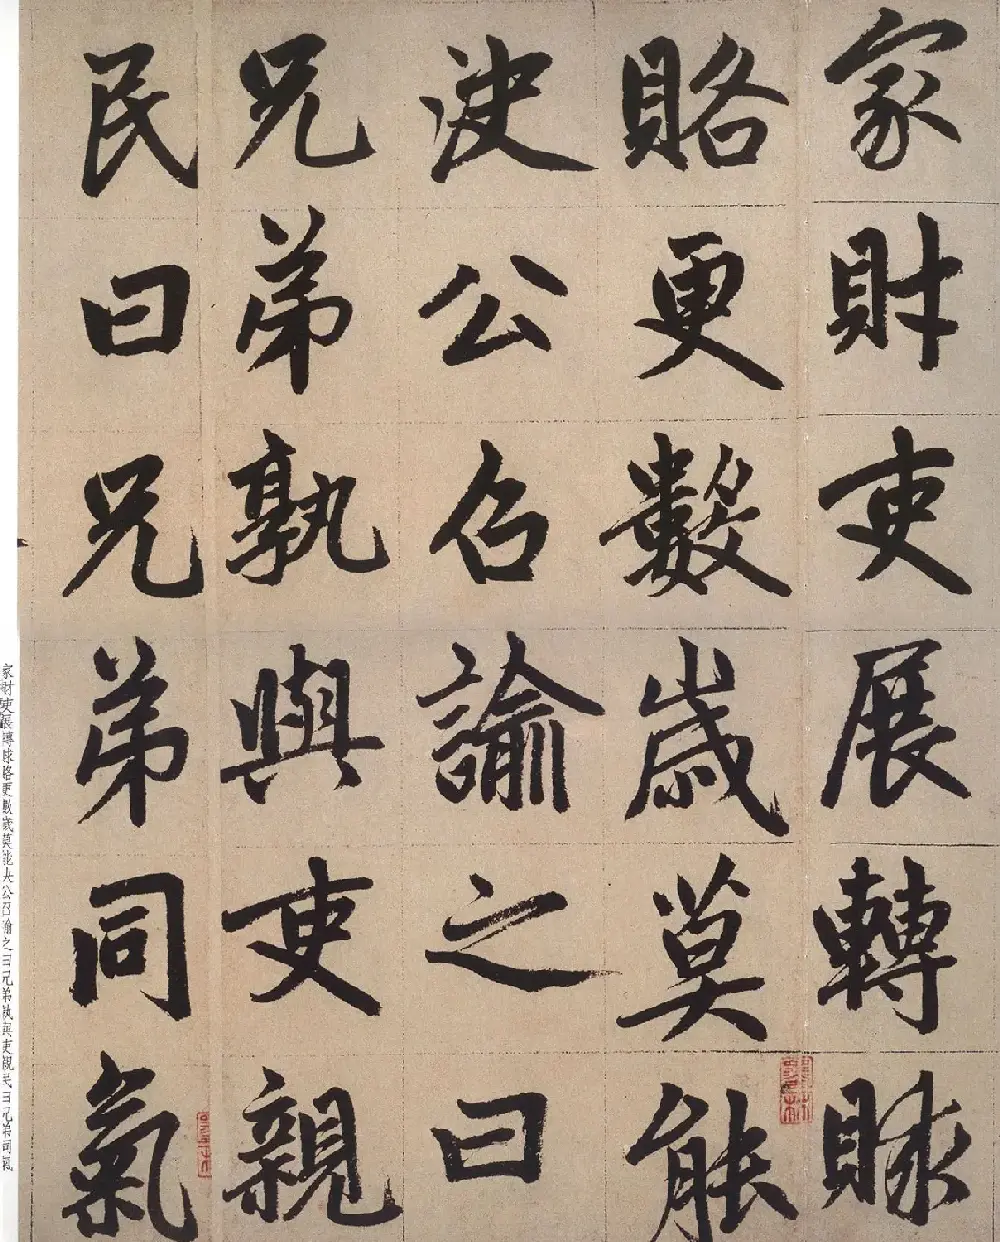 家財吏展轉賕
賂更數歲莫能
決公召諭之曰
兄弟孰與吏親
民曰兄弟同氣
家財吏展轉賕賂更數歲莫能決公召諭之曰兄弟孰與吏親民曰兄弟同氣